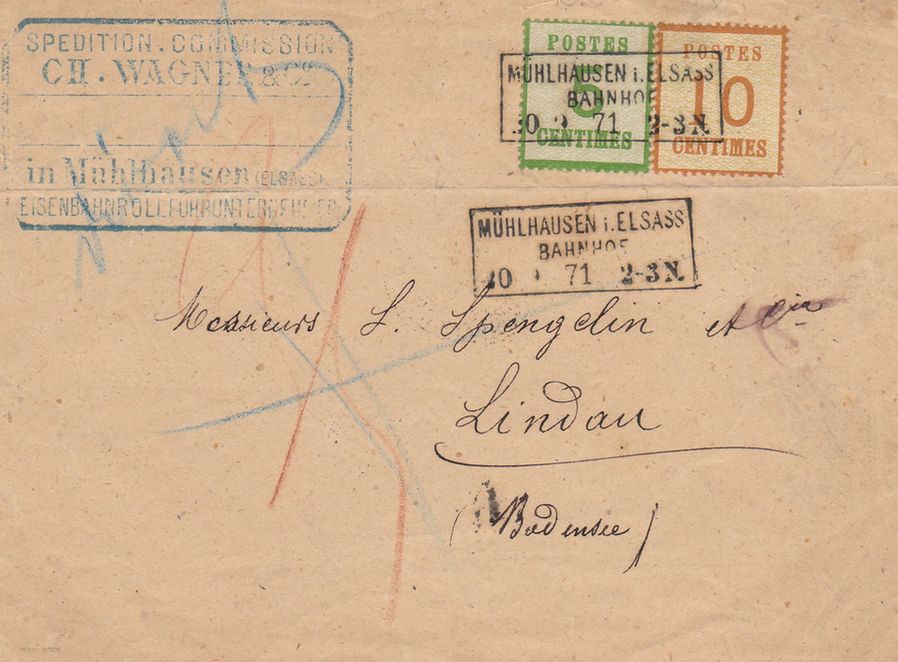 SPEDITION. COMMISSION
CH. WAGNER & Cie
in Mühlhausen (ELSASS)
EISENBAHNROLLFUHRUNTERNEHMER
POSTES
5
CENTIMES
POSTES
10
CENTIMES
MÜHLHAUSEN i. ELSASS
BAHNHOF
71 2-3 N.
MÜHLHAUSEN i. ELSASS
BAHNHOF
71 2-3 N.
Messieurs L. Spengelin et Cie
Lindau
(Bodensee)